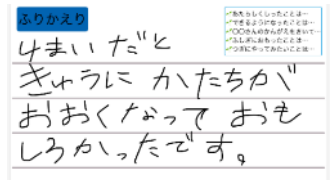 ふりかえり
・あたらしくしったことは…
・できるようになったことは…
・〇〇さんのかんがえをきいて…
・ふしぎにおもったことは…
・つぎにやってみたいことは…
4まいだと
きゅうに かたちが
おおくなって おも
しろかったです。